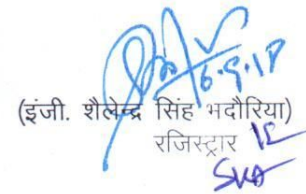 6.9.18
(इंजी. शैलेन्द्र सिंह भदौरिया)
रजिस्ट्रार